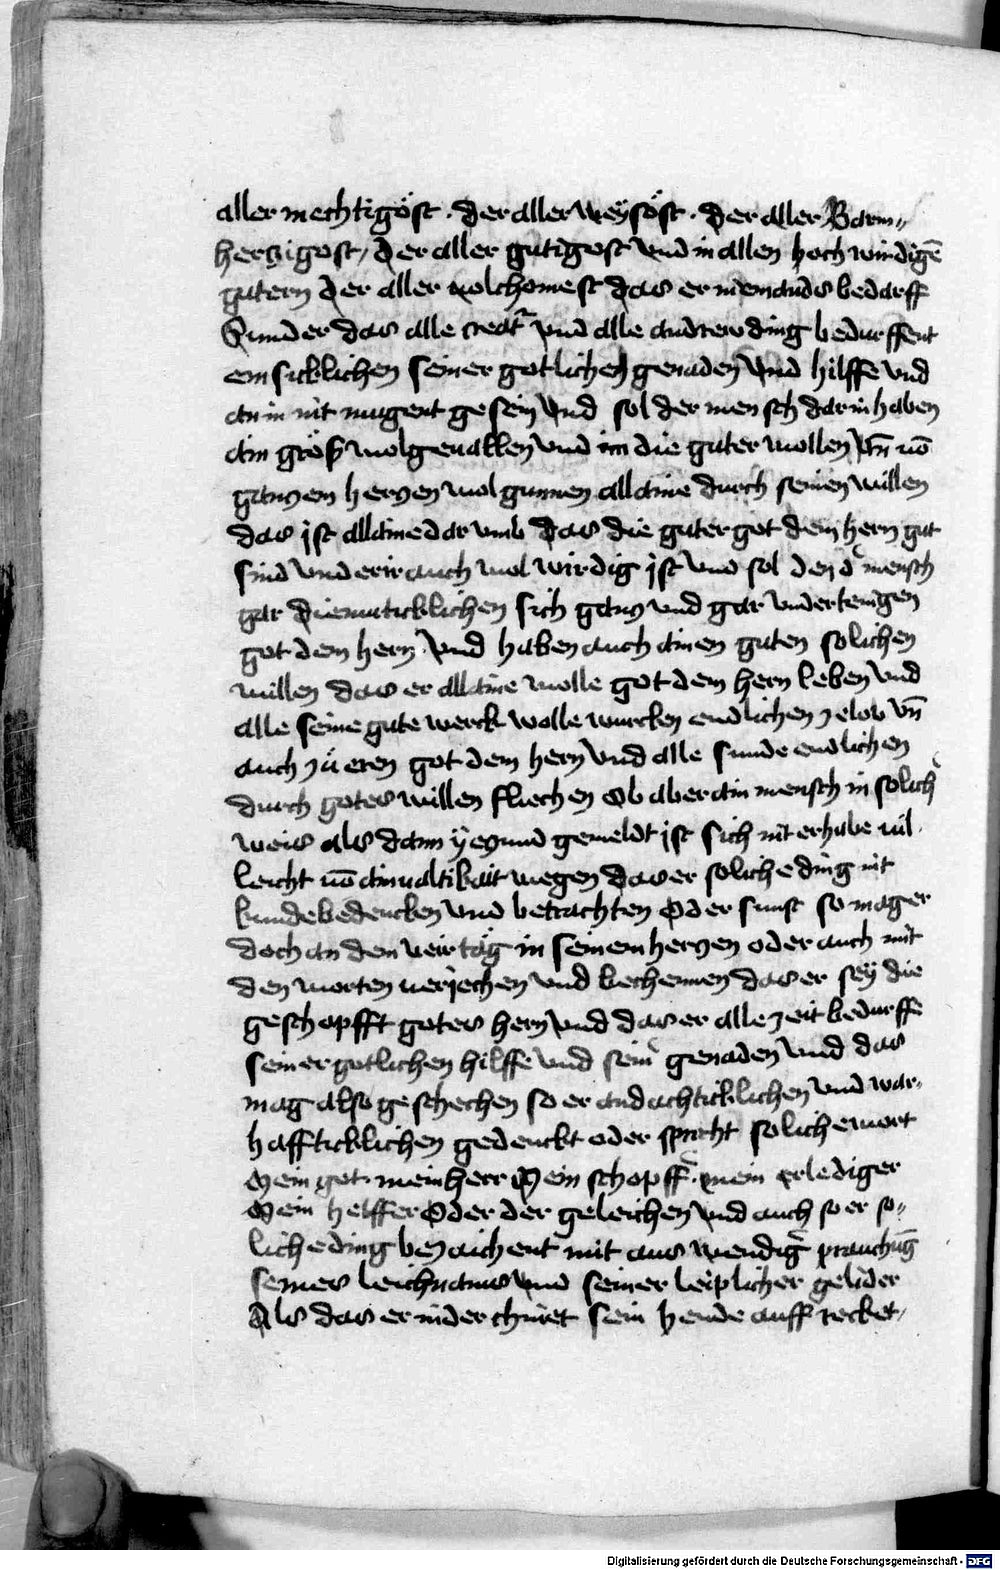 aller mechtigöst · der aller weÿsöst · der aller Barm„
herczigost / der aller gutigost vnd in allen hoch wirdigē
gutern der aller uolchomest das er niemands bedarff
Sunder das alle creatr vnd alle andrew ding bedurffent
ein sicklichen seiner gotlichen genaden vnd hilffe vnd
an in nit mugent gesein vnd sol der mensch darin haben
ain gröſß wolgeuallen vnd im die guter wollen vn̄ uō
ganczem herczen wol gunnen allaine durch seinen willen
das jst allaine dar vmb das die guter got dem hern gut
sind vnd er ir auch wol wirdig jst vnd sol den d mensch
gar diemuticklichen sich gancz vnd gar vndertenigen
got dem hern vnd haben auch ainen guten solichen
willen das er allaine wolle got dem hern leben vnd
alle seine gute werck wolle wurcken endlichen ze lob vn̄
auch zů eren got dem hern vnd alle sunde endlichen
durch gotes willen fliechen Ob aber ain mensch in solich
weis als dann ÿeczund gemeldt jst sich nit erhabe uil
leicht uō ainualtikait wegen das er soliche ding nit
kunde bedencken vnd betrachten Oder sunst so mag er
doch an dem ueirtäg in seinem herczen oder auch mit
den worten uerjechen vnd bechennen das er seÿ die
geschopfft gotes hern vnd das er alle zeit bedurffe
seiner gotlichen hilffe vnd sein genaden vnd das
mag also geschechen so er andachticklichen vnd war„
hafftticklichen gedenckt oder spricht soliche wort
Mein got · mein herr Mein schopff · mein erlediger
Mein helffer Oder der geleichen vnd auch so er so„
liche ding bezaichent mit aus wendig prauchūg
seines leichnams vnd seiner leiplicher gelider
Als das er nider chniet sein hende auff recket /
Digitalisierung gefördert durch die Deutsche Forschungsgemeinschaft - DFG